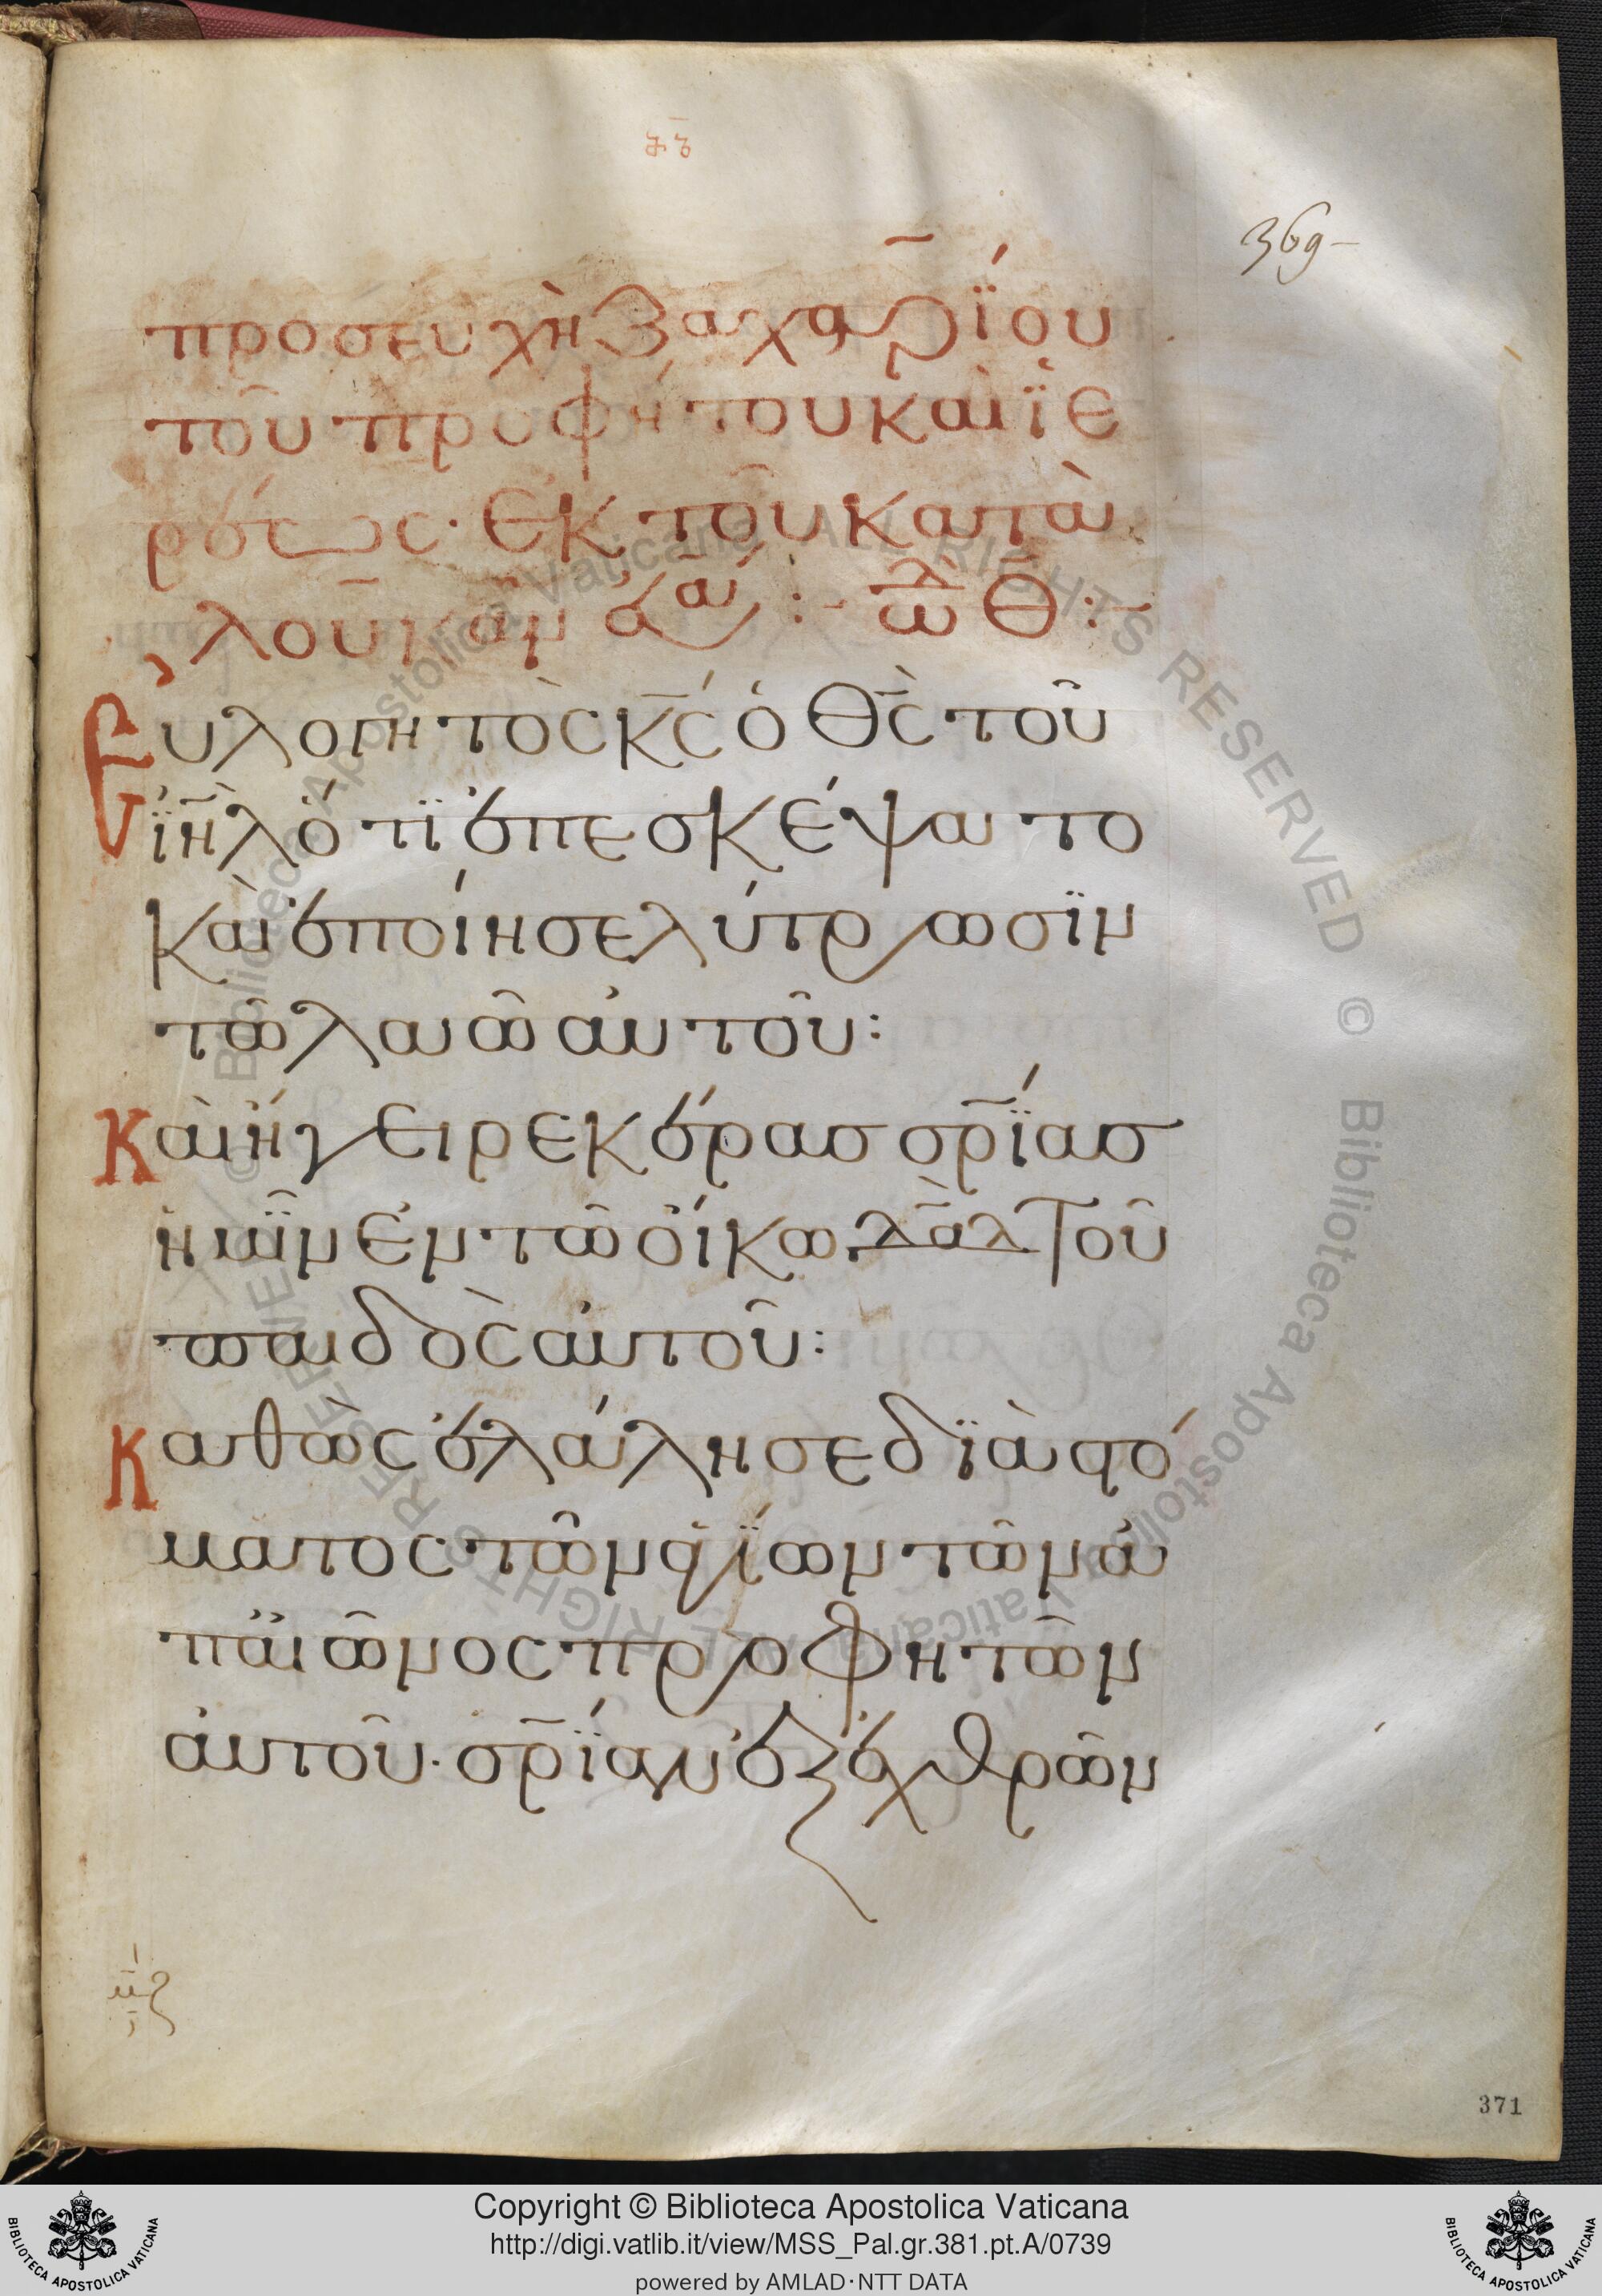 369
προσευχὴ ζαχαρΐου
τοῦ προφήτου καὶ ϊε
ρέως· ἐκ τοῦ κατὰ
λουκᾶν ἁγ :- ὠδ Θ :-
Εὐλογητὸς κ̅ς̅ ὁ θ̅ς̅ τοῦ
ϊη̅λ̅ ὅτϊ ἐπεσκέψατο
καὶ ἐποίησε λύτρωσϊν
τῶ λαῶ αὐτοῦ:
Καὶ ἤγειρε κέρας σρ̅ΐας
ἡμῖν ἐν τῶ οἴκω δα̅δ̅ τοῦ
παιδὸς αὐτοῦ:
Καθὼς ἐλάλησε δϊὰ στό
ματος τῶν ἁγΐων τῶν ἀ
π' αἰῶνος προφητῶν
αὐτοῦ· σρ̅ΐαν ἐξ ἐχθρῶν
371
Copyright © Biblioteca Apostolica Vaticana
http://digi.vatlib.it/view/MSS_Pal.gr.381.pt.A/0739
powered by AMLAD·NTT DATA
BIBLIOTECA APOSTOLICA VATICANA
BIBLIOTECA APOSTOLICA VATICANA
© Biblioteca Apostolica Vaticana ALL RIGHTS RESERVED © Biblioteca Apostolica Vaticana ALL RIGHTS RESERVED